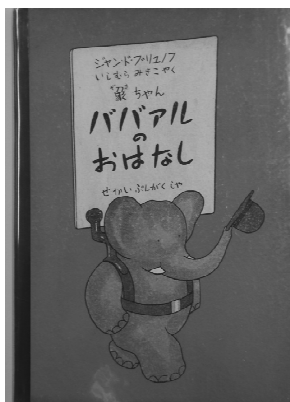 ジャン・ド・ブリュノフ
いしむら みきこ やく
象ちゃん
ババァル
の
おはなし
せかいぶんがくしゃ